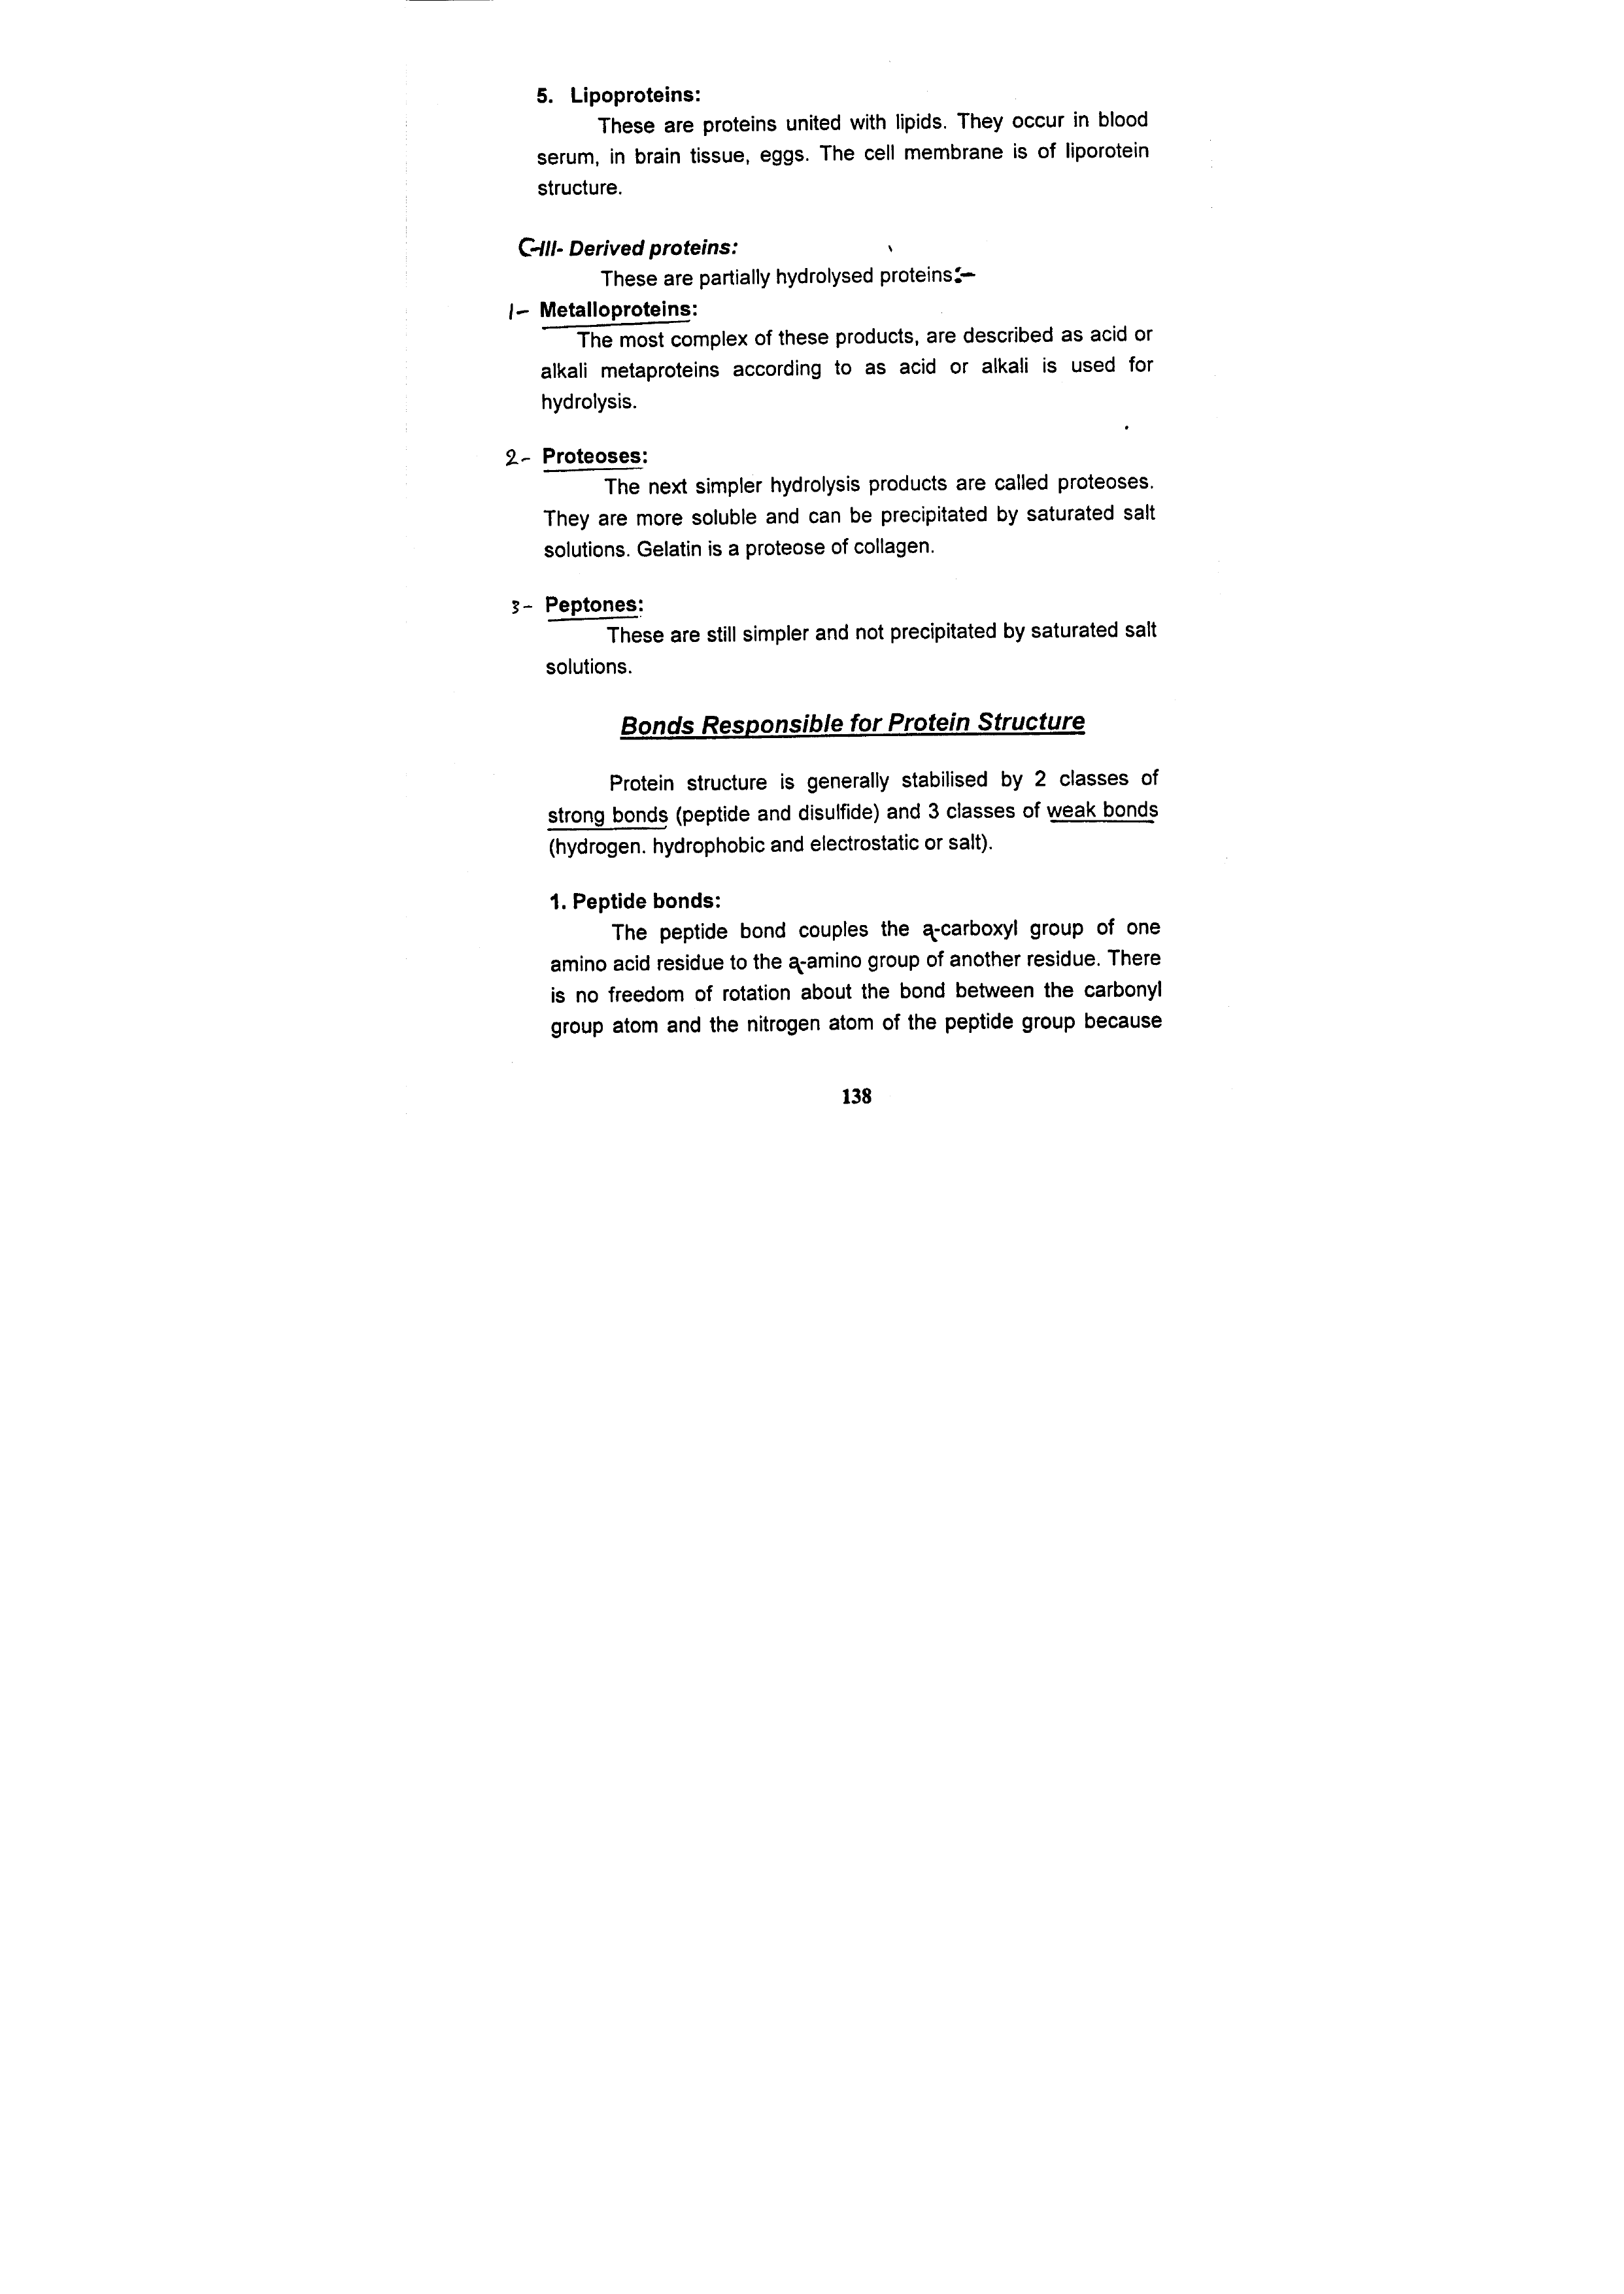 5. Lipoproteins:
These are proteins united with lipids. They occur in blood
serum, in brain tissue, eggs. The cell membrane is of liporotein
structure.
C-III- Derived proteins:
These are partially hydrolysed proteins:-
1- Metalloproteins:
The most complex of these products, are described as acid or
alkali metaproteins according to as acid or alkali is used for
hydrolysis.
2- Proteoses:
The next simpler hydrolysis products are called proteoses.
They are more soluble and can be precipitated by saturated salt
solutions. Gelatin is a proteose of collagen.
3- Peptones:
These are still simpler and not precipitated by saturated salt
solutions.
Bonds Responsible for Protein Structure
Protein structure is generally stabilised by 2 classes of
strong bonds (peptide and disulfide) and 3 classes of weak bonds
(hydrogen. hydrophobic and electrostatic or salt).
1. Peptide bonds:
The peptide bond couples the α-carboxyl group of one
amino acid residue to the α-amino group of another residue. There
is no freedom of rotation about the bond between the carbonyl
group atom and the nitrogen atom of the peptide group because
138